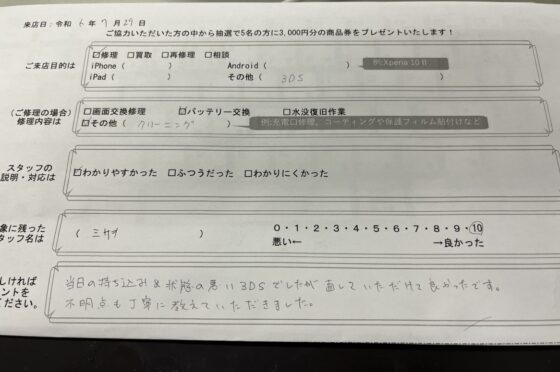 来店日:令和 6 年 7 月 29 日
ご協力いただいた方の中から抽選で5名の方に3,000円分の商品券をプレゼントいたします!
ご来店目的は
☑修理 □買取 □再修理 □相談
iPhone ( ) Android ( ) 例:Xperia 10 Ⅱ
iPad ( ) その他 ( 3DS )
(ご修理の場合)
修理内容は
□画面交換修理 ☑バッテリー交換 □水没復旧作業
☑その他 ( クリーニング ) 例:充電口修理、コーティングや保護フィルム貼付けなど
スタッフの
説明・対応は
☑わかりやすかった □ふつうだった □わかりにくかった
象に残った
タッフ名は
( )
0・1・2・3・4・5・6・7・8・9・⑩
悪い← →良かった
しければ
ントを
ください。
当日の持ち込み & 状態の悪い3DSでしたが直していただけて良かったです。
不明点も丁寧に教えていただきました。